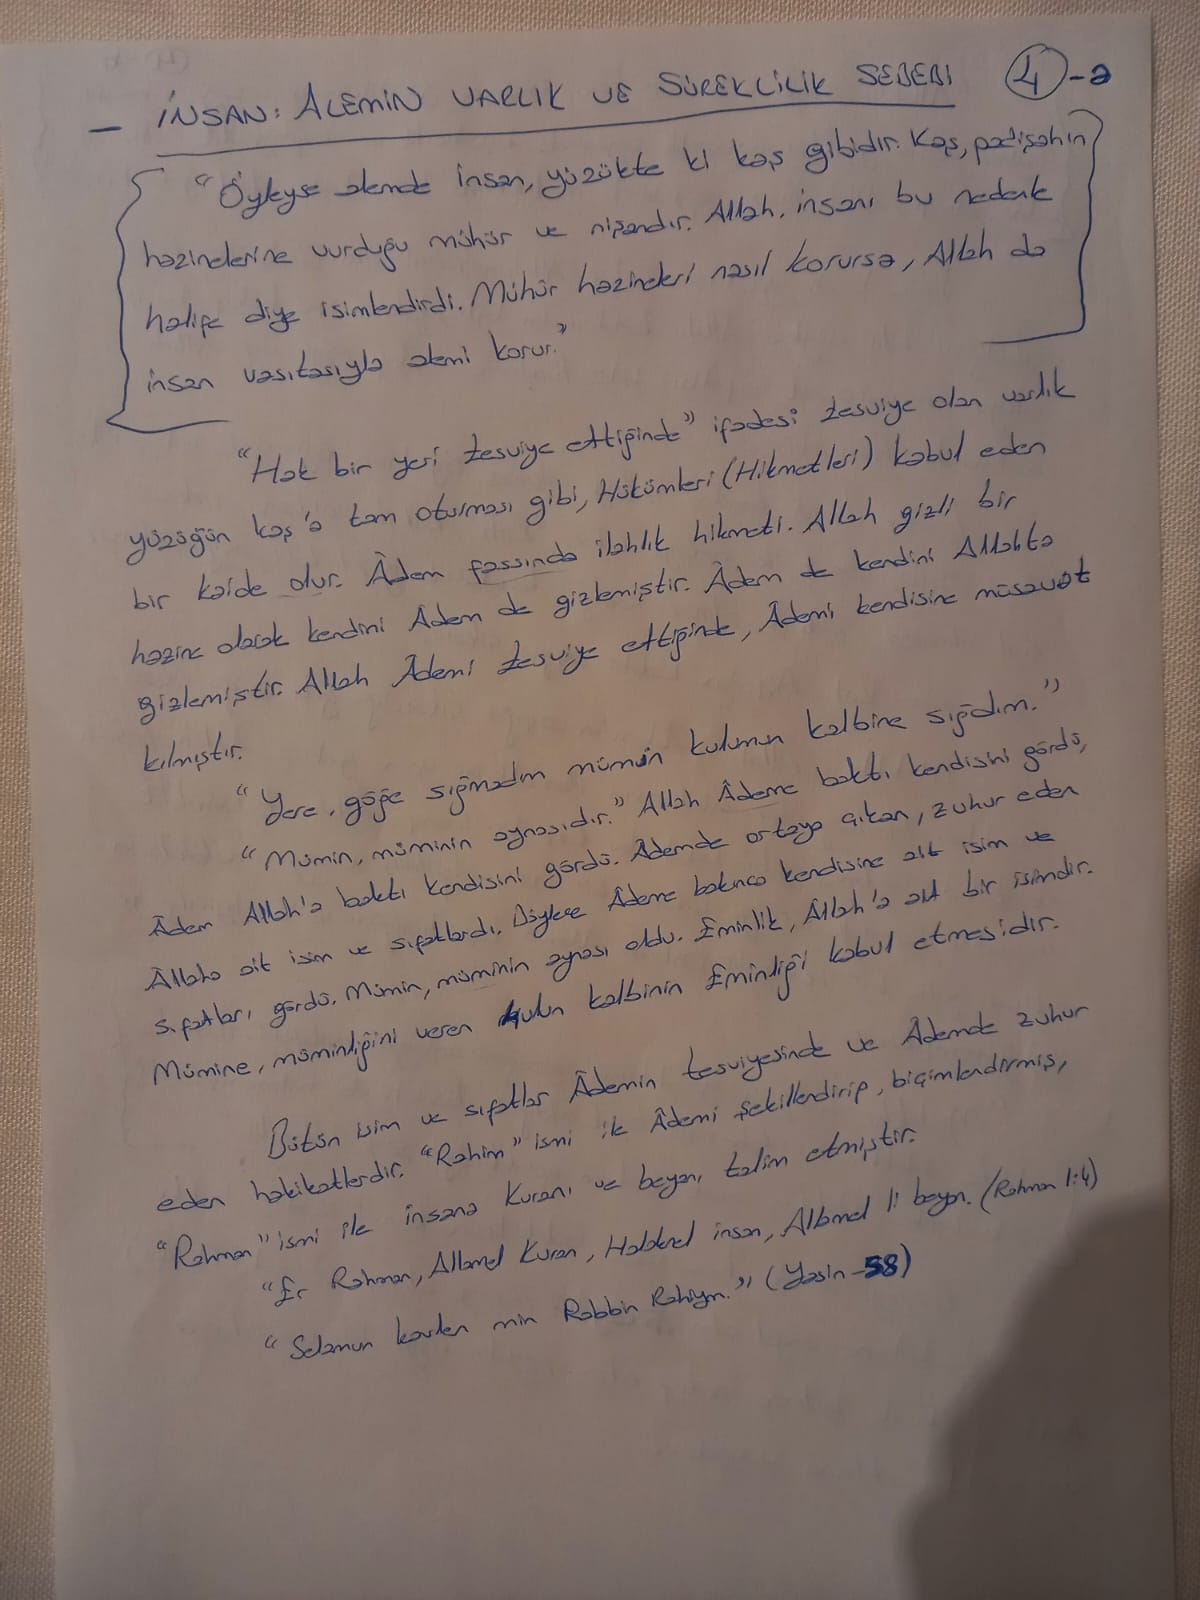 - İNSAN: ALEMİN VARLIK VE SÜREKLİLİK SEBEBİ 4-a
"Öyleyse alemde insan, yüzükte ki kaş gibidir. Kaş, padişahın
hazinelerine vurduğu mühür ve nişandır. Allah, insanı bu nedenle
halife diye isimlendirdi. Mühür hazineleri nasıl korursa, Allah da
insan vasıtasıyla alemi korur."
"Hak bir yeri tesviye ettiğinde" ifadesi tesviye olan varlık
yüzüğün kaş'a tam oturması gibi, Hükümleri (Hikmetleri) kabul eden
bir kaide olur. Âdem fassında ilahlık hikmeti. Allah gizli bir
hazine olarak kendini Âdem de gizlemiştir. Âdem de kendini Allahta
gizlemiştir. Allah Âdemi tesviye ettiğinde, Âdemi kendisine müsavat
kılmıştır.
"Yere, göğe sığmadım mümin kulumun kalbine sığdım."
"Mümin, müminin aynasıdır." Allah Âdeme baktı kendisini gördü,
Âdem Allah'a baktı kendisini gördü. Âdemde ortaya çıkan, zuhur eden
Âllaha ait isim ve sıfatlardı. Böylece Âdeme bakınca kendisine ait isim ve
sıfatları gördü. Mümin, müminin aynası oldu. Eminlik, Âllah'a ait bir isimdir.
Mümine, müminliğini veren kulun kalbinin Eminliği kabul etmesidir.
Bütün isim ve sıfatlar Âdemin tesviyesinde ve Âdemde zuhur
eden hakikatlerdir. "Rahim" ismi ile Âdemi şekillendirip, biçimlendirmiş,
"Rahman" ismi ile insana Kuranı ve beyanı talim etmiştir.
"Er Rahman, Allamel Kuran, Halakel insan, Allamel l' beyan. (Rahman 1:4)
"Selamun kavlen min Rabbin Rahiym." (Yasin-58)